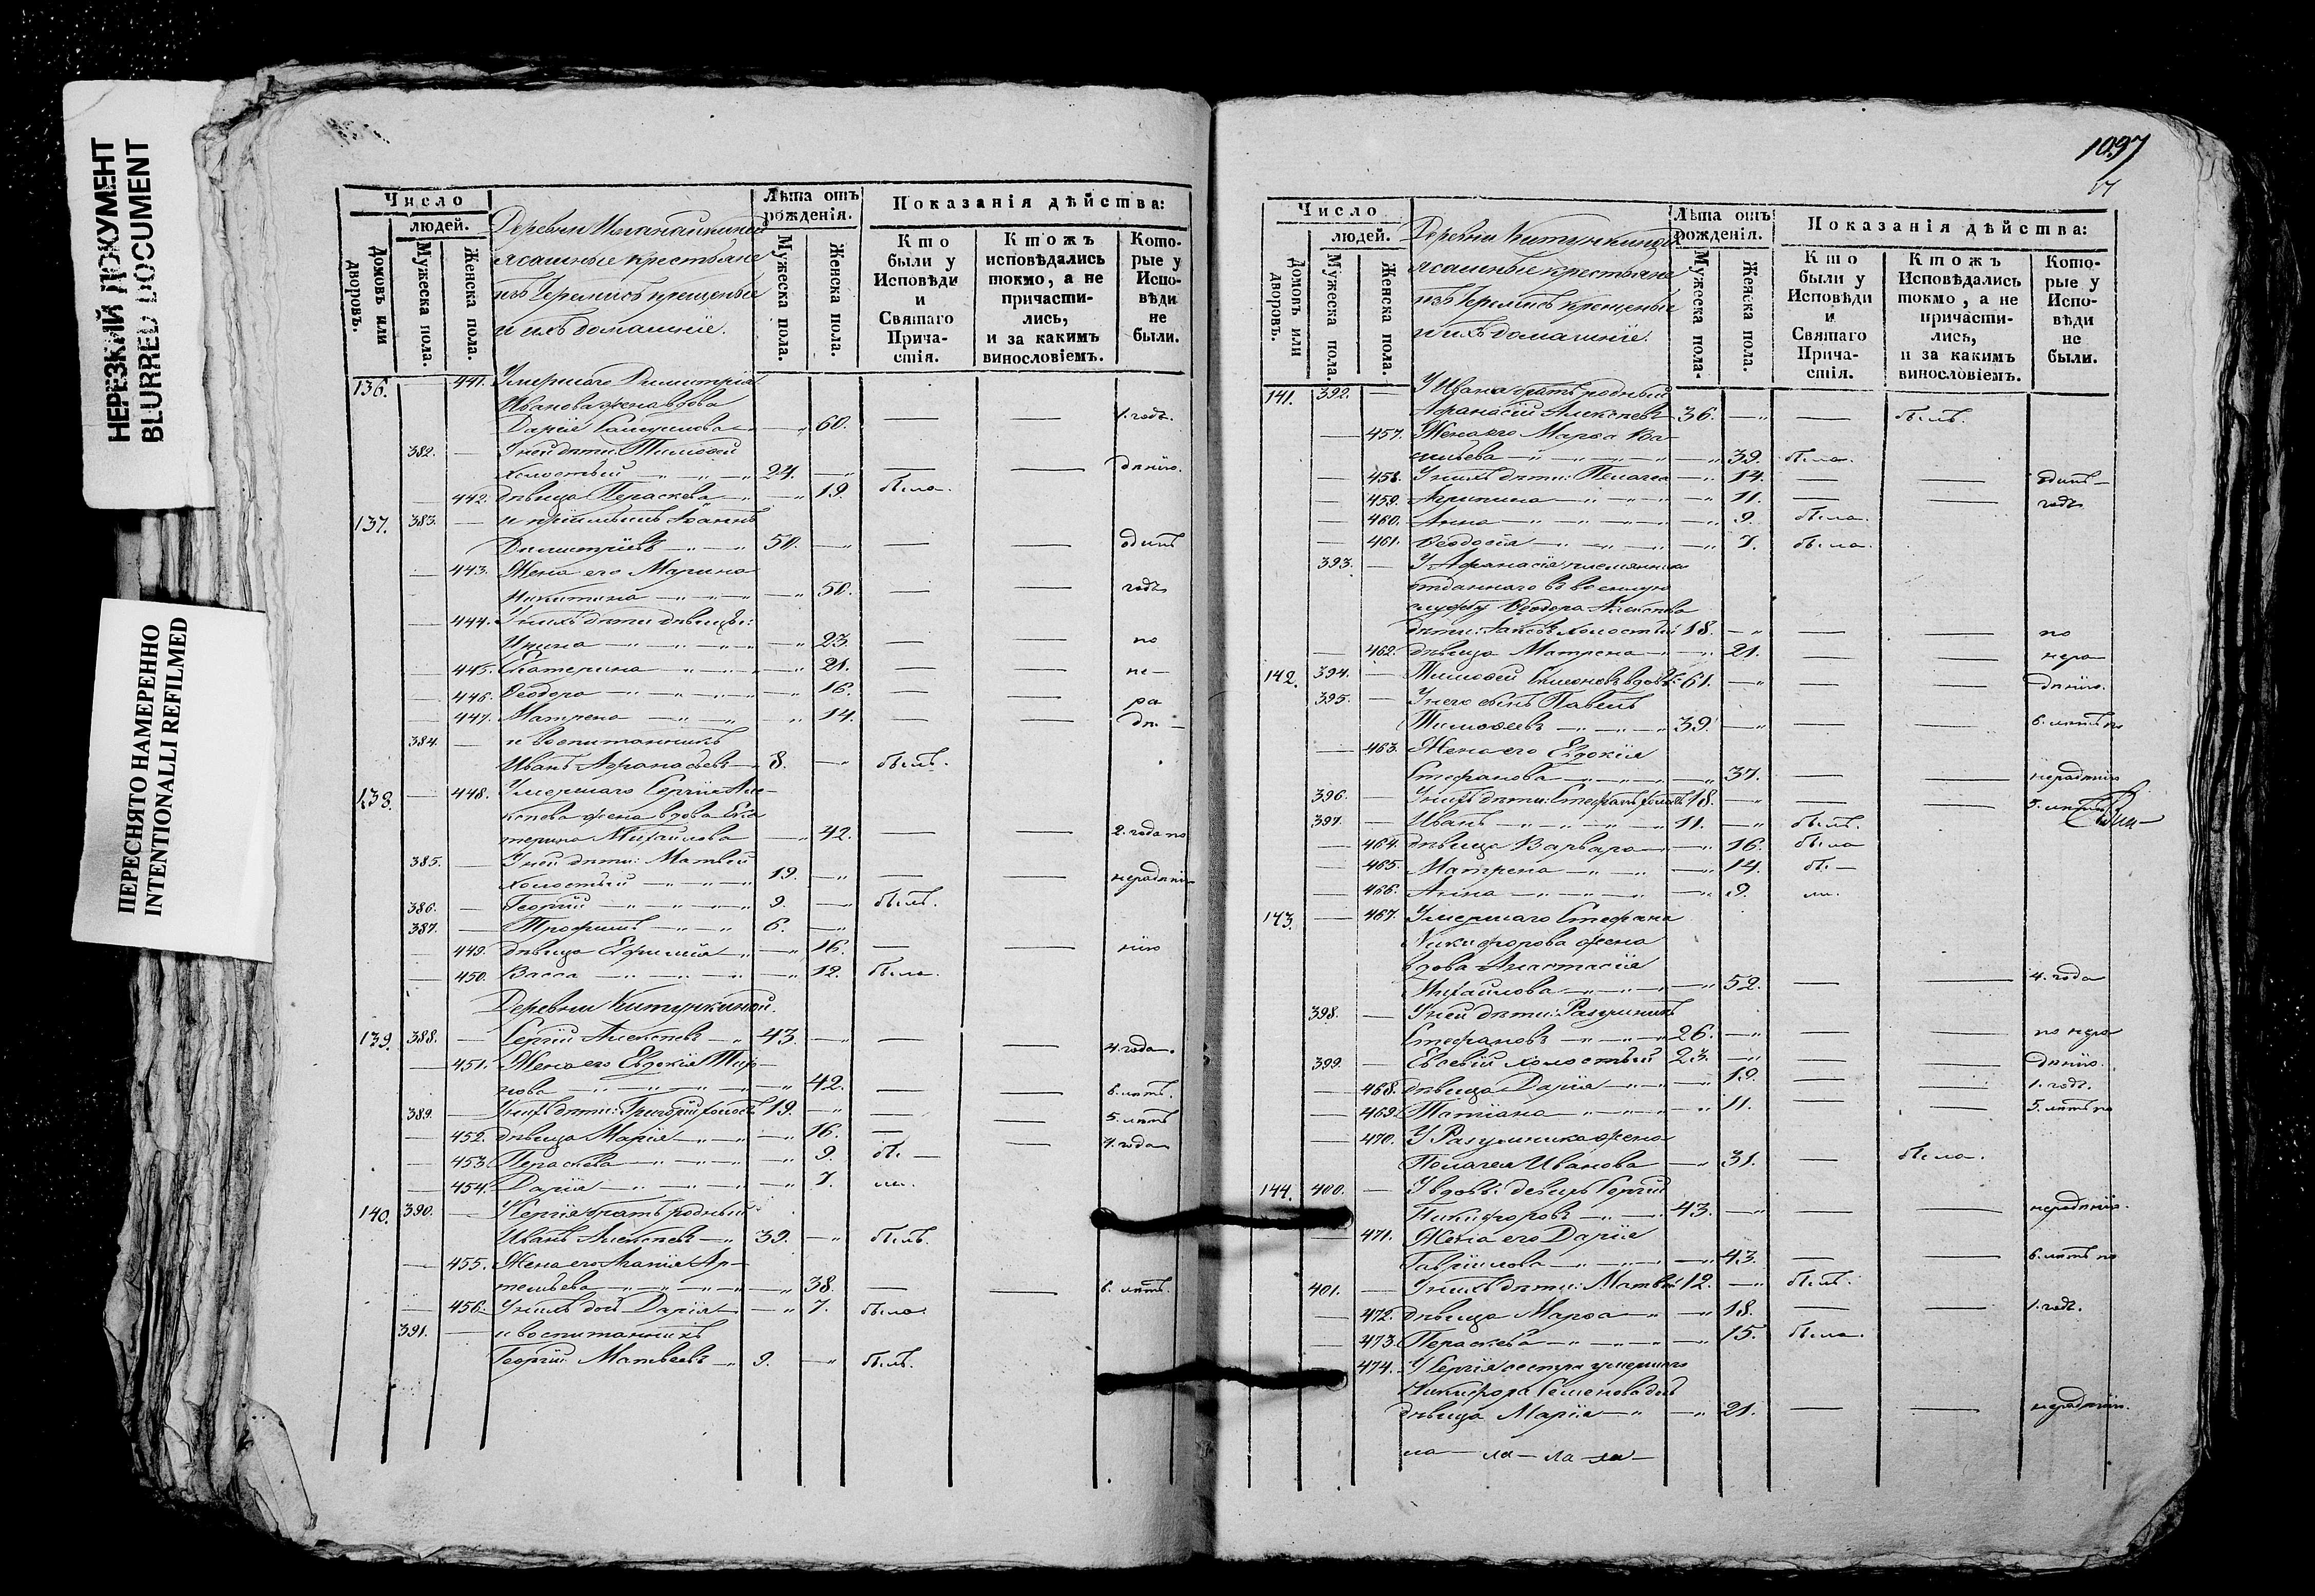 НЕРЕЗКИЙ ДОКУМЕНТ
BLURRED DOCUMENT
ПЕРЕСНЯТО НАМЕРЕННО
INTENTIONALLI REFILMED
Число
людей.
Домовъ или дворовъ.
Мужеска пола.
Женска пола.
Деревни
ясашные крестьяне
изъ Черемисъ крещеные
и ихъ домашніе.
Лѣта отъ рожденія.
Мужеска пола.
Женска пола.
Показанія дѣйства:
Кто были у Исповѣди и Святаго Причастія.
Ктожъ исповѣдались токмо, а не причастились, и за какимъ винословіемъ.
Которые у Исповѣди не были.
136. — 441. Умершаго Димитрія
Иванова жена вдова
Дарія — 60. — — 1. годъ.
382. — У ней дѣти: Тимоѳей
холостый — 24. — — —
— 442. дѣвица Параскева — 19. была.
137. 383. — и Іоаннъ
Димитріевъ — 50. — — — одинъ
— 443. Жена его Марина
Никитина — 50. — — годъ
— 444. У нихъ дѣти дѣвицы:
Ирина — 23. — — по
— 445. Екатерина — 21. — — не-
— 446. Ѳеодора — 16. — — ра
— 447. Матрена — 14. — — дѣ-
384. — и воспитанникъ
Иванъ Аѳанасьевъ — 8. — былъ.
138. — 448. Умершаго Сергія Але-
ксѣева жена вдова Ека
терина Михайлова — 42. — — 2. года по
385. — У ней дѣти: Матвей
холостый — 19. — — —
386. — Георгій — 9. — былъ.
387. — Трофимъ — 6. —
— 449. дѣвица Ефимія — 16. — — нію
— 450. Васса — 12. была.
Деревни Китункиной.
139. 388. — Сергій Алексѣевъ — 43. — — — 4. года.
— 451. Жена его Евдокія
нова — 42. — — 6. лѣтъ.
389. — У нихъ дѣти: Григорій холост. 19. — — — 5. лѣтъ
— 452. дѣвица Марія — 16. — — 4. года
— 453. Параскева — 9. бы —
— 454. Дарія — 7. ли.
140. 390. — У Сергія братъ родный
Иванъ Алексѣевъ — 39. — былъ.
— 455. Жена его Ар-
темьева — 38. — — 6. лѣтъ.
— 456. У нихъ дочь Дарія — 7. была.
391. — и воспитанникъ
Георгій Матвеевъ — 9. — былъ.
1097
Число
людей.
Домовъ или дворовъ.
Мужеска пола.
Женска пола.
Деревни Китункиной
ясашные крестьяне
изъ Черемисъ крещеные
и ихъ домашніе.
Лѣта отъ рожденія.
Мужеска пола.
Женска пола.
Показанія дѣйства:
Кто были у Исповѣди и Святаго Причастія.
Ктожъ Исповѣдались токмо, а не причастились, и за какимъ винословіемъ.
Которые у Исповѣди не были.
141. 392. — У Ивана братъ родный
Аѳанасій Алексѣевъ 36. — — былъ.
— 457. Жена его Марѳа Ва
сильева — 39. была.
— 458. У нихъ дѣти: Пелагея — 14. — — одинъ
— 459. Агрипина — 11. — — годъ
— 460. Анна — 9. была.
— 461. Ѳеодосія — 7. была.
393. — У Аѳанасія племянника
отданнаго въ военную
службу Ѳеодора Алексѣева
дѣти: холостый 18. — — — по
— 462. дѣвица Матрена — 21. — — нера
142. 394. — Тимоѳей Симеоновъ вдовъ 61. — — — дѣнію.
395. — У него сынъ Павелъ
Тимоѳеевъ — 39. — — — 6. лѣтъ по
— 463. Жена его Евдокія
Стефанова — 37. — — нерадѣнію
396. — У нихъ дѣти: Стефанъ холос. 18. — — — 5. лѣтъ
397. — Иванъ — 11. — былъ.
— 464. дѣвица Варвара — 16. была
— 465. Матрена — 14. бы —
— 466. Анна — 9. ли.
143. — 467. Умершаго Стефана
Никифорова жена
вдова Анастасія
Михайлова — 52. — — 4. года
398. — У ней дѣти: Разумникъ
Стефановъ — 26. — — — по нера
399. — Евсевій холостый 23. — — — дѣнію.
— 468. дѣвица Дарія — 19. — — 1. годъ.
— 469. Татіана — 11. — — 5. лѣтъ по
— 470. У Разумника жена
Пелагея Иванова — 31. — была.
144. 400. — У вдовы деверь Сергій
Никифоровъ — 43. — — — нерадѣнію.
— 471. Жена его Дарія
Гавріилова — 43. — — 6. лѣтъ по
401. — У нихъ дѣти: Матвей 12. — былъ.
— 472. дѣвица Марѳа — 18. — — 1. годъ.
— 473. Параскева — 15. была.
— 474. У Сергія сестра умершаго
Никифора Семенова дочь
дѣвица Марія — 21. — — нерадѣнію.